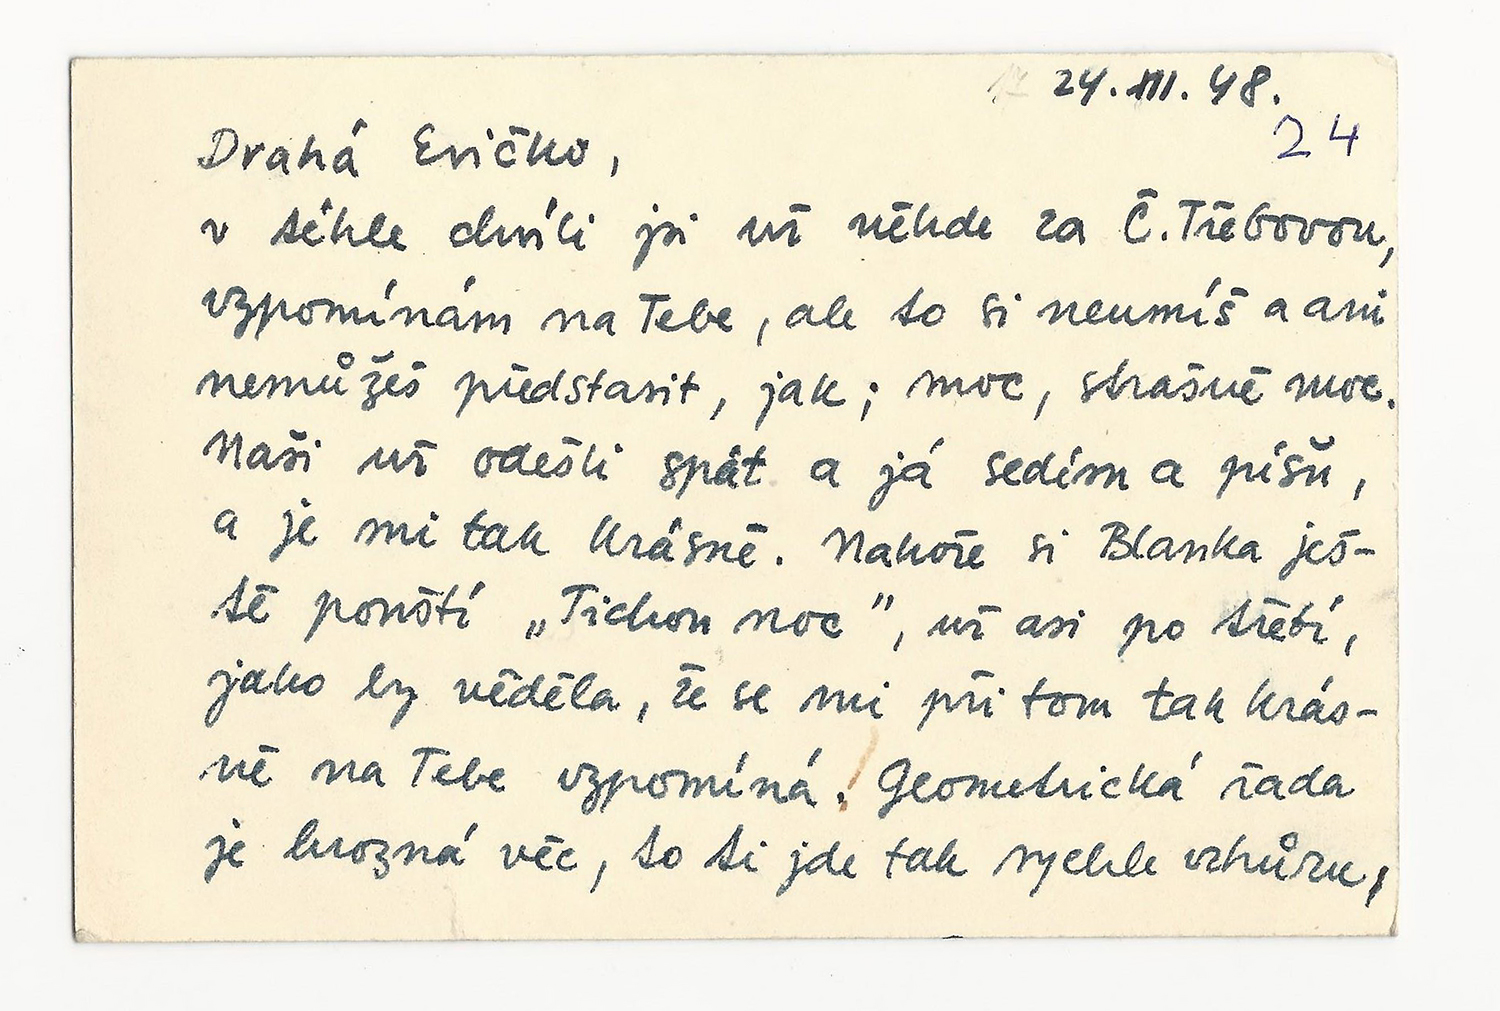 24. III. 48.
24
Drahá Evičko,
v téhle chvíli jsi už někde za Č. Třebovou,
vzpomínám na Tebe, ale to si neumíš a ani
nemůžeš představit, jak; moc, strašně moc.
Naši už odešli spát a já sedím a píšu,
a je mi tak krásně. Nahoře si Blanka ješ-
tě pouští „Tichou noc", už asi po třetí,
jako by věděla, že se mi při tom tak krás-
ně na Tebe vzpomíná. Geometrická řada
je hrozná věc, to ti jde tak rychle vzhůru,